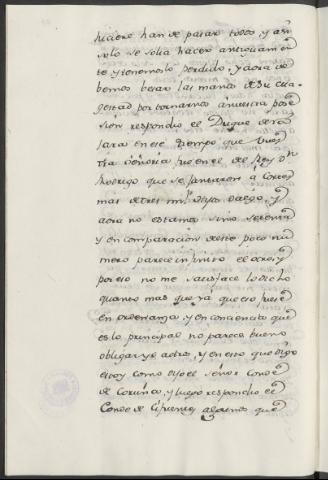 hiciere han de pasar todos, y assi
solo se solia hacer antiguamen
te y tenemoslo perdido, y aora de
bemos besar las manos de Su Ma-
gestad por tornarnos a nuestra pose
sion respondio el Duque de
en ese tiempo que Vues
tra Señoria fue en el del Rey Dn
Rodrigo que se juntaron á Cortes
mas de tres mil hijos dalgo, y
aora no estamos sino setenta
y en comparacion deste poco nu
mero parece infinito el otro, y
por eso no me satisface lo dicho
quanto mas que ya que eso fuese
en ordenanza, y en conciencia que
es lo principal no parece bueno
obligar yo a otro, y en esto que digo
estoy como dijo el señor Conde
de Coruña, y luego respondio el
Conde de Cifuentes algunos que